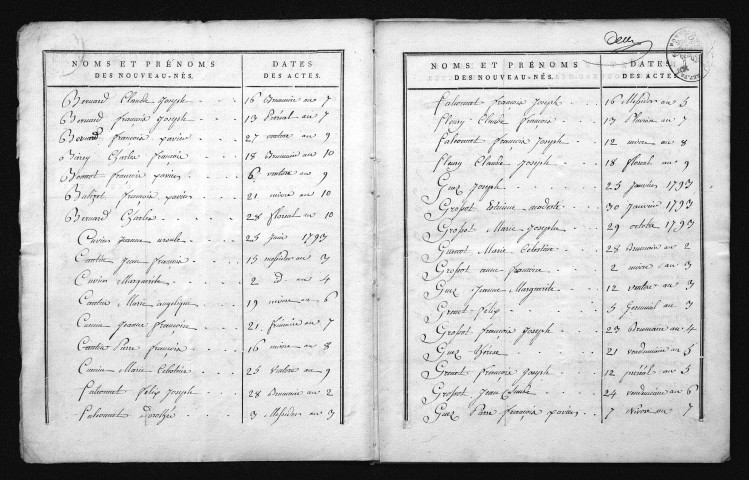 NOMS ET PRÉNOMS DATES
DES NOUVEAU-NÉS. DES ACTES.
Bernard Claude Joseph 16 Brumaire an 7
Bernard françois Joseph 13 Preréal an 7
Bernard françois xavier 27 ventose an 9
Biney Charles françois 18 Brumaire an 10
Bonnot françois xavier 6 ventose an 9
françois xavier 21 nivose an 10
Bernard Charles 28 floreal an 10
Cuvier jeanne ursule 25 juin 1793
jean françois 15 messidor an 3
Cuvier Margueritte 2 id. an 4
Marie angelique 19 nivose an 6
jeanne françoise 21 frimaire an 7
Pierre françois 16 nivose an 8
Marie Celestine 25 ventose an 9
felix Joseph 28 Brumaire an 2
3 Messidor an 3
Deux
NOMS ET PRÉNOMS DATES
DES NOUVEAU-NÉS. DES ACTES.
françois Joseph 16 Messidor an 5
fleury Claude françois 13 Pluviose an 7
françois Joseph 12 nivose an 8
fleury Claude Joseph 18 floreal an 9
Guez Joseph 25 janvier 1793
Grosjot modeste 30 janvier 1793
Grosjot Marie Josephe 29 octobre 1793
Marie Celestine 28 Brumaire an 2
Grosjot anne françoise 2 nivose an 3
Guez jeanne Margueritte 12 ventose an 3
felix 5 Germinal an 3
Grosjot françois Joseph 23 Brumaire an 4
Guez therese 21 vendemiaire an 5
françois Joseph 12 preréal an 5
Grosjot jean Claude 24 vendemiaire an 6
Guez Pierre françois xavier 7 nivose an 7